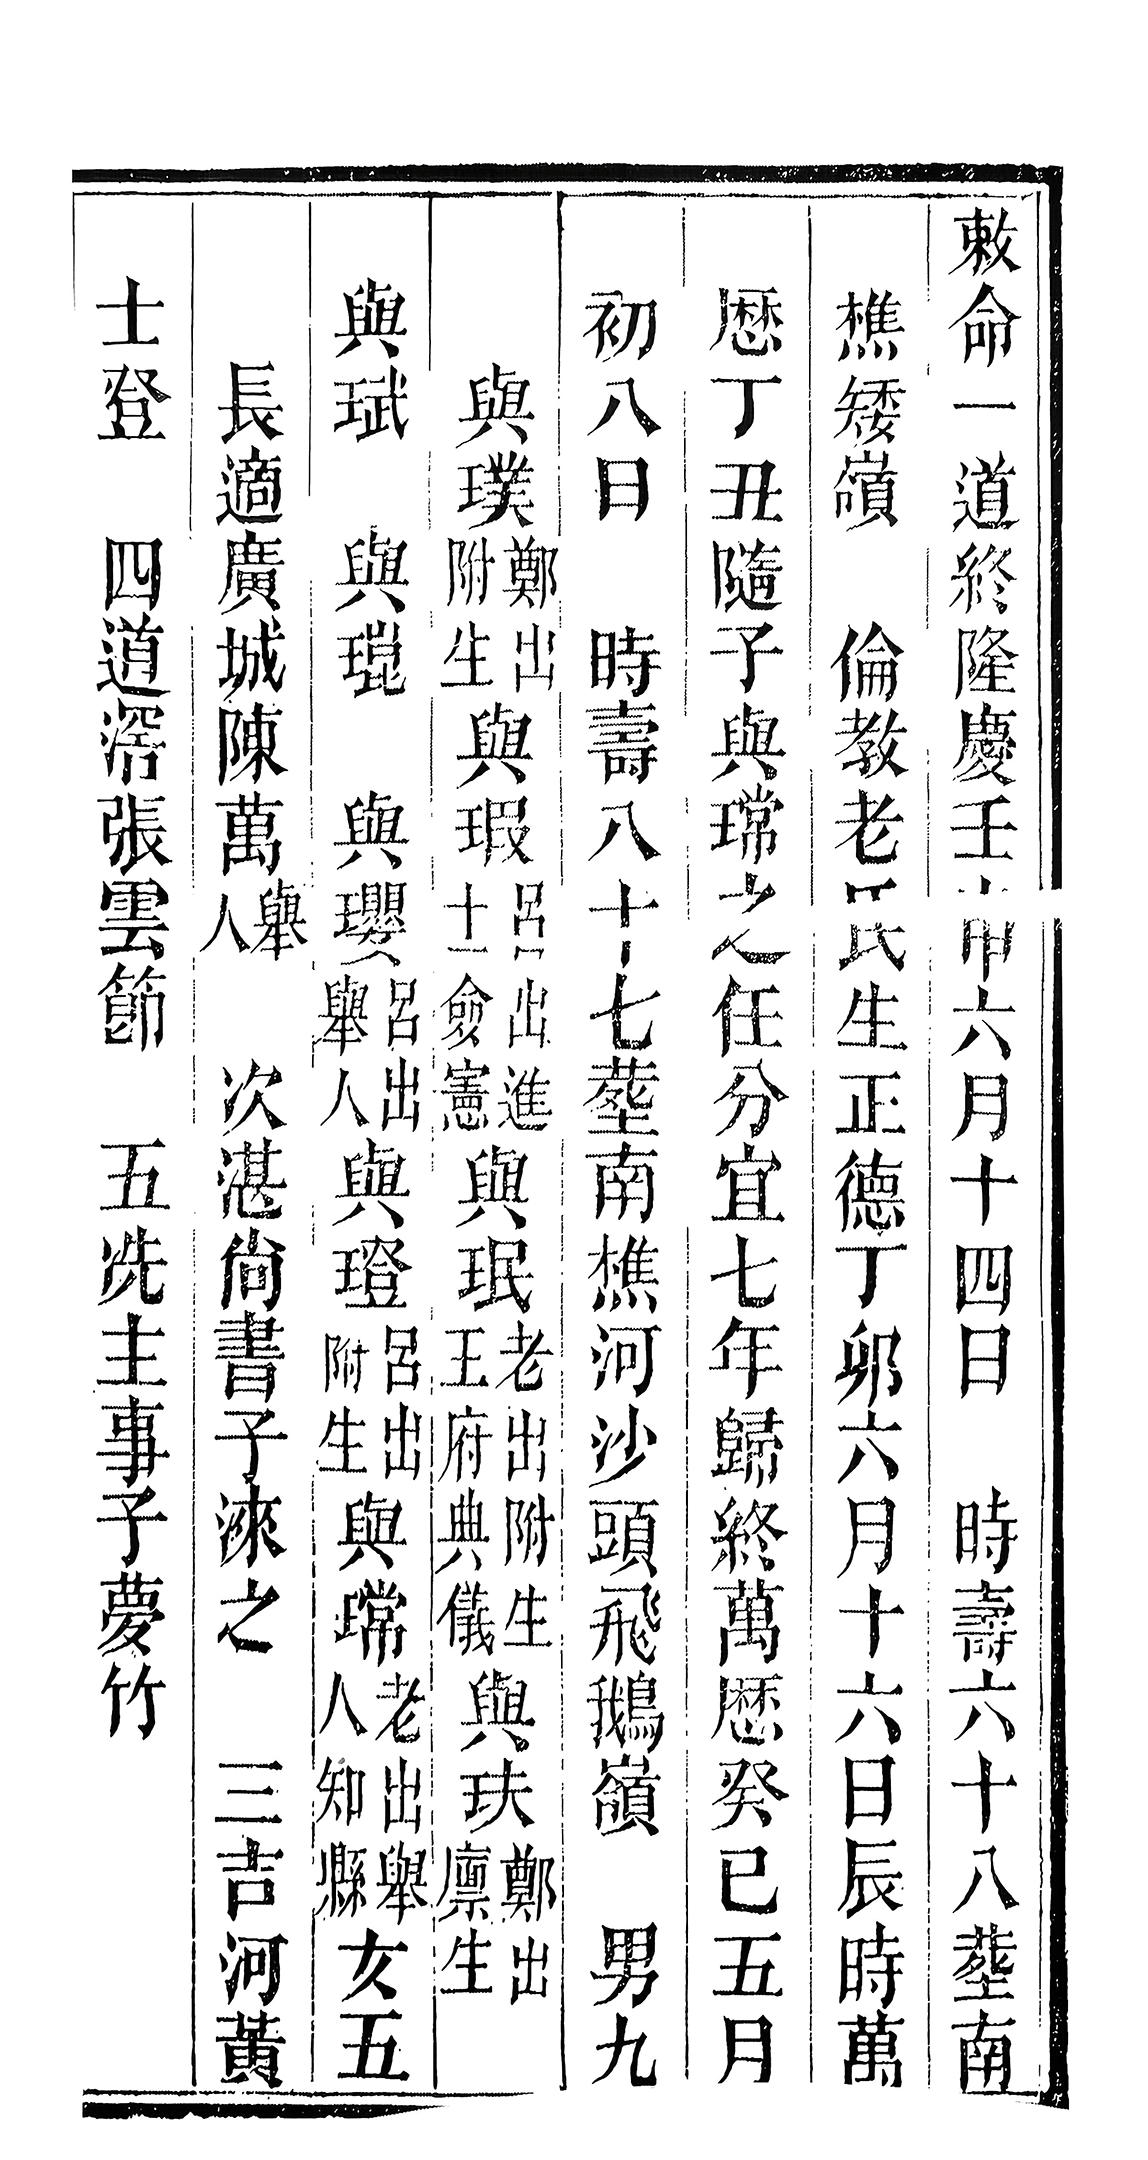 敕命一道終隆慶壬申六月十四日　時壽六十八塟南
樵矮嶺　倫教老氏生正德丁卯六月十六日辰時萬
厯丁丑隨子與瑺之任分宜七年歸終萬厯癸巳五月
初八日　時壽八十七塟南樵河沙頭飛鵝嶺　男九
與璞鄭出附生與瑕呂出進士僉憲與珉老出附生王府典儀與玞鄭出廪生
與珷　與琨　與瓔呂出舉人與璒呂出附生與瑺老出舉人知縣女五
長適廣城陳萬舉人　次湛尙書子淶之　三吉河黃
士登　四道滘張雲節　五冼主事子夢竹